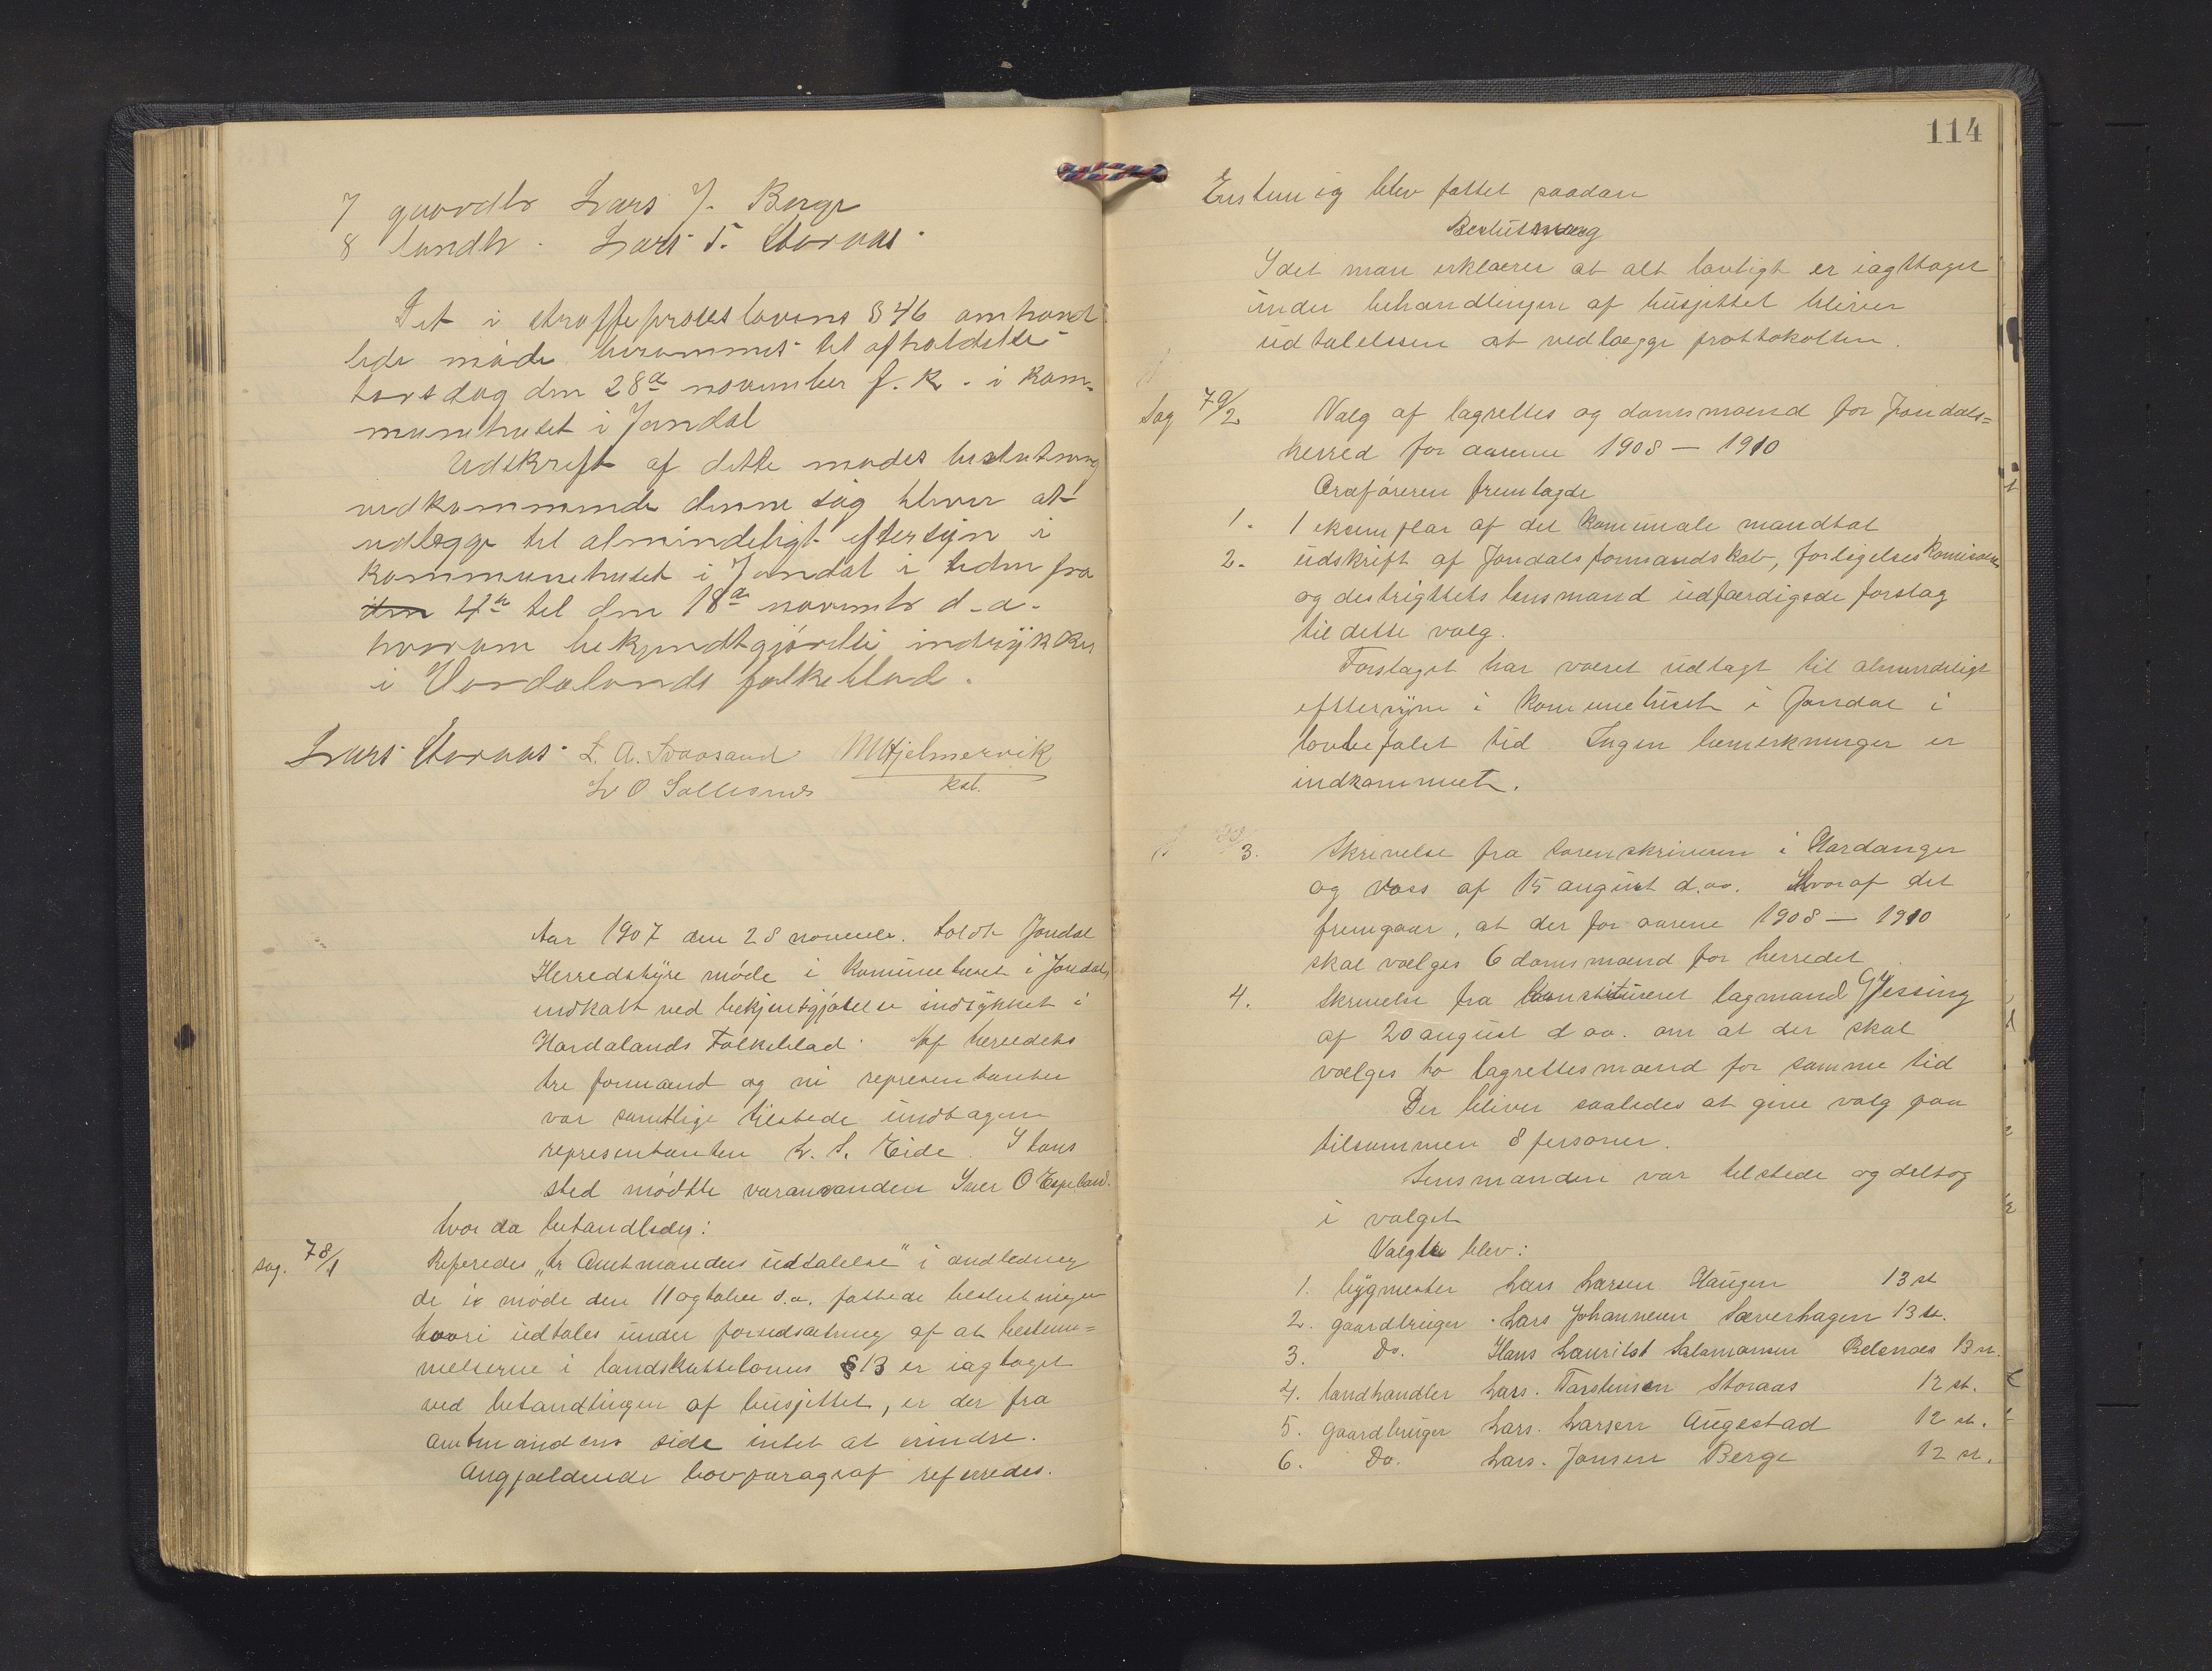 7 gaardbr Lars J. Berge
8 landh. Lars T. Storaas.
Det i straffeproceslovens § 46 omhand
lede møde berammes til afholdelse
torsdag den 28de november f. k. i kom-
munehuset i Jondal
Udskrift af dette mødes beslutning
vedkommende denne sag bliver at
udlægge til almindeligt eftersyn i
kommunehuset i Jondal i tiden fra
den 4de til den 18de novembr d.a.
hvorom bekjendtgjørelse indrykkes
i Hordalands folkeblad.
Lars Storaas L. A. Svaasand M Hjelmervik
L O Sollesnes kst.
Aar 1907 den 28 novemb. holdt Jondal
Herredstyre møde i kommuehuset i Jondal
indkalt ved bekjentgjørelse indrykket i
Hordalands Folkeblad. Af herredets
tre formænd og ni representanter
var samtlige tilstede undtagen
representanten L. S. Eide. I hans
sted mødtte varamanden Iver O Espeland.
hvor da behandledes:
Sag. 78/1 Referedes "hr Amtmandens udtalelse" i andledning
de i møde den 11 ogtober d.a. fattede beslutninger
hvori udtales under forudsætning af at bestem=
melserne i landskattelovens § 13 er iagtaget
ved behandlingen af busjettet, er der fra
amtmandens side intet at erindre.
Angjældende lovparagraf referredes.
114
Enstemig blev fattet saadan
Beslutning
Idet man erklærer at alt lovligt er iagttaget
under behandlingen af busjettet bliver
udtalelsen at vedlægge prottokollen.
Sag 79/2 Valg af lagrettes og domsmænd for Jondals=
herred for aarene 1908 – 1910
Orføreren fremlagde
1. 1 eksemplar af det komunale mandtal
2. udskrift af Jondals formandskab, forligelseskomisions
og destrigttets lensmand udfærdigede forslag
til dette valg.
Forslaget har været udlagt til almindeligt
eftersyn i komunehuset i Jondal i
lovbefalet tid. Ingen bemerkninger er
indkommet.
3. Skrivelse fra sorenskriveren i Hardanger
og Voss af 15 august d.aa. Hvoraf det
fremgaar, at der for aarene 1908 – 1910
skal vælges 6 domsmænd for herredet
4. Skrivelse fra konstitueret lagmand Gjessing
af 20 august d aa. om at der skal
vælges to lagrettesmænd for samme tid
Der bliver saaledes at give valg paa
tilsammen 8 personer.
Lensmanden var tilstede og deltog
i valget
Valgte blev:
1. bygmester Lars Larsen Haugen 13 st
2. gaardbruger Lars Johannesen Sæverhagen 13 st.
3. Do. Hans Lauritst Salamonsen Belsnæs 13 st.
4. landhandler Lars. Tarsteinsen Storaas 12 st.
5. gaardbruger Lars. Larsen Augestad 12 st.
6. Do. Lars. Jonsen Berge 12 st.